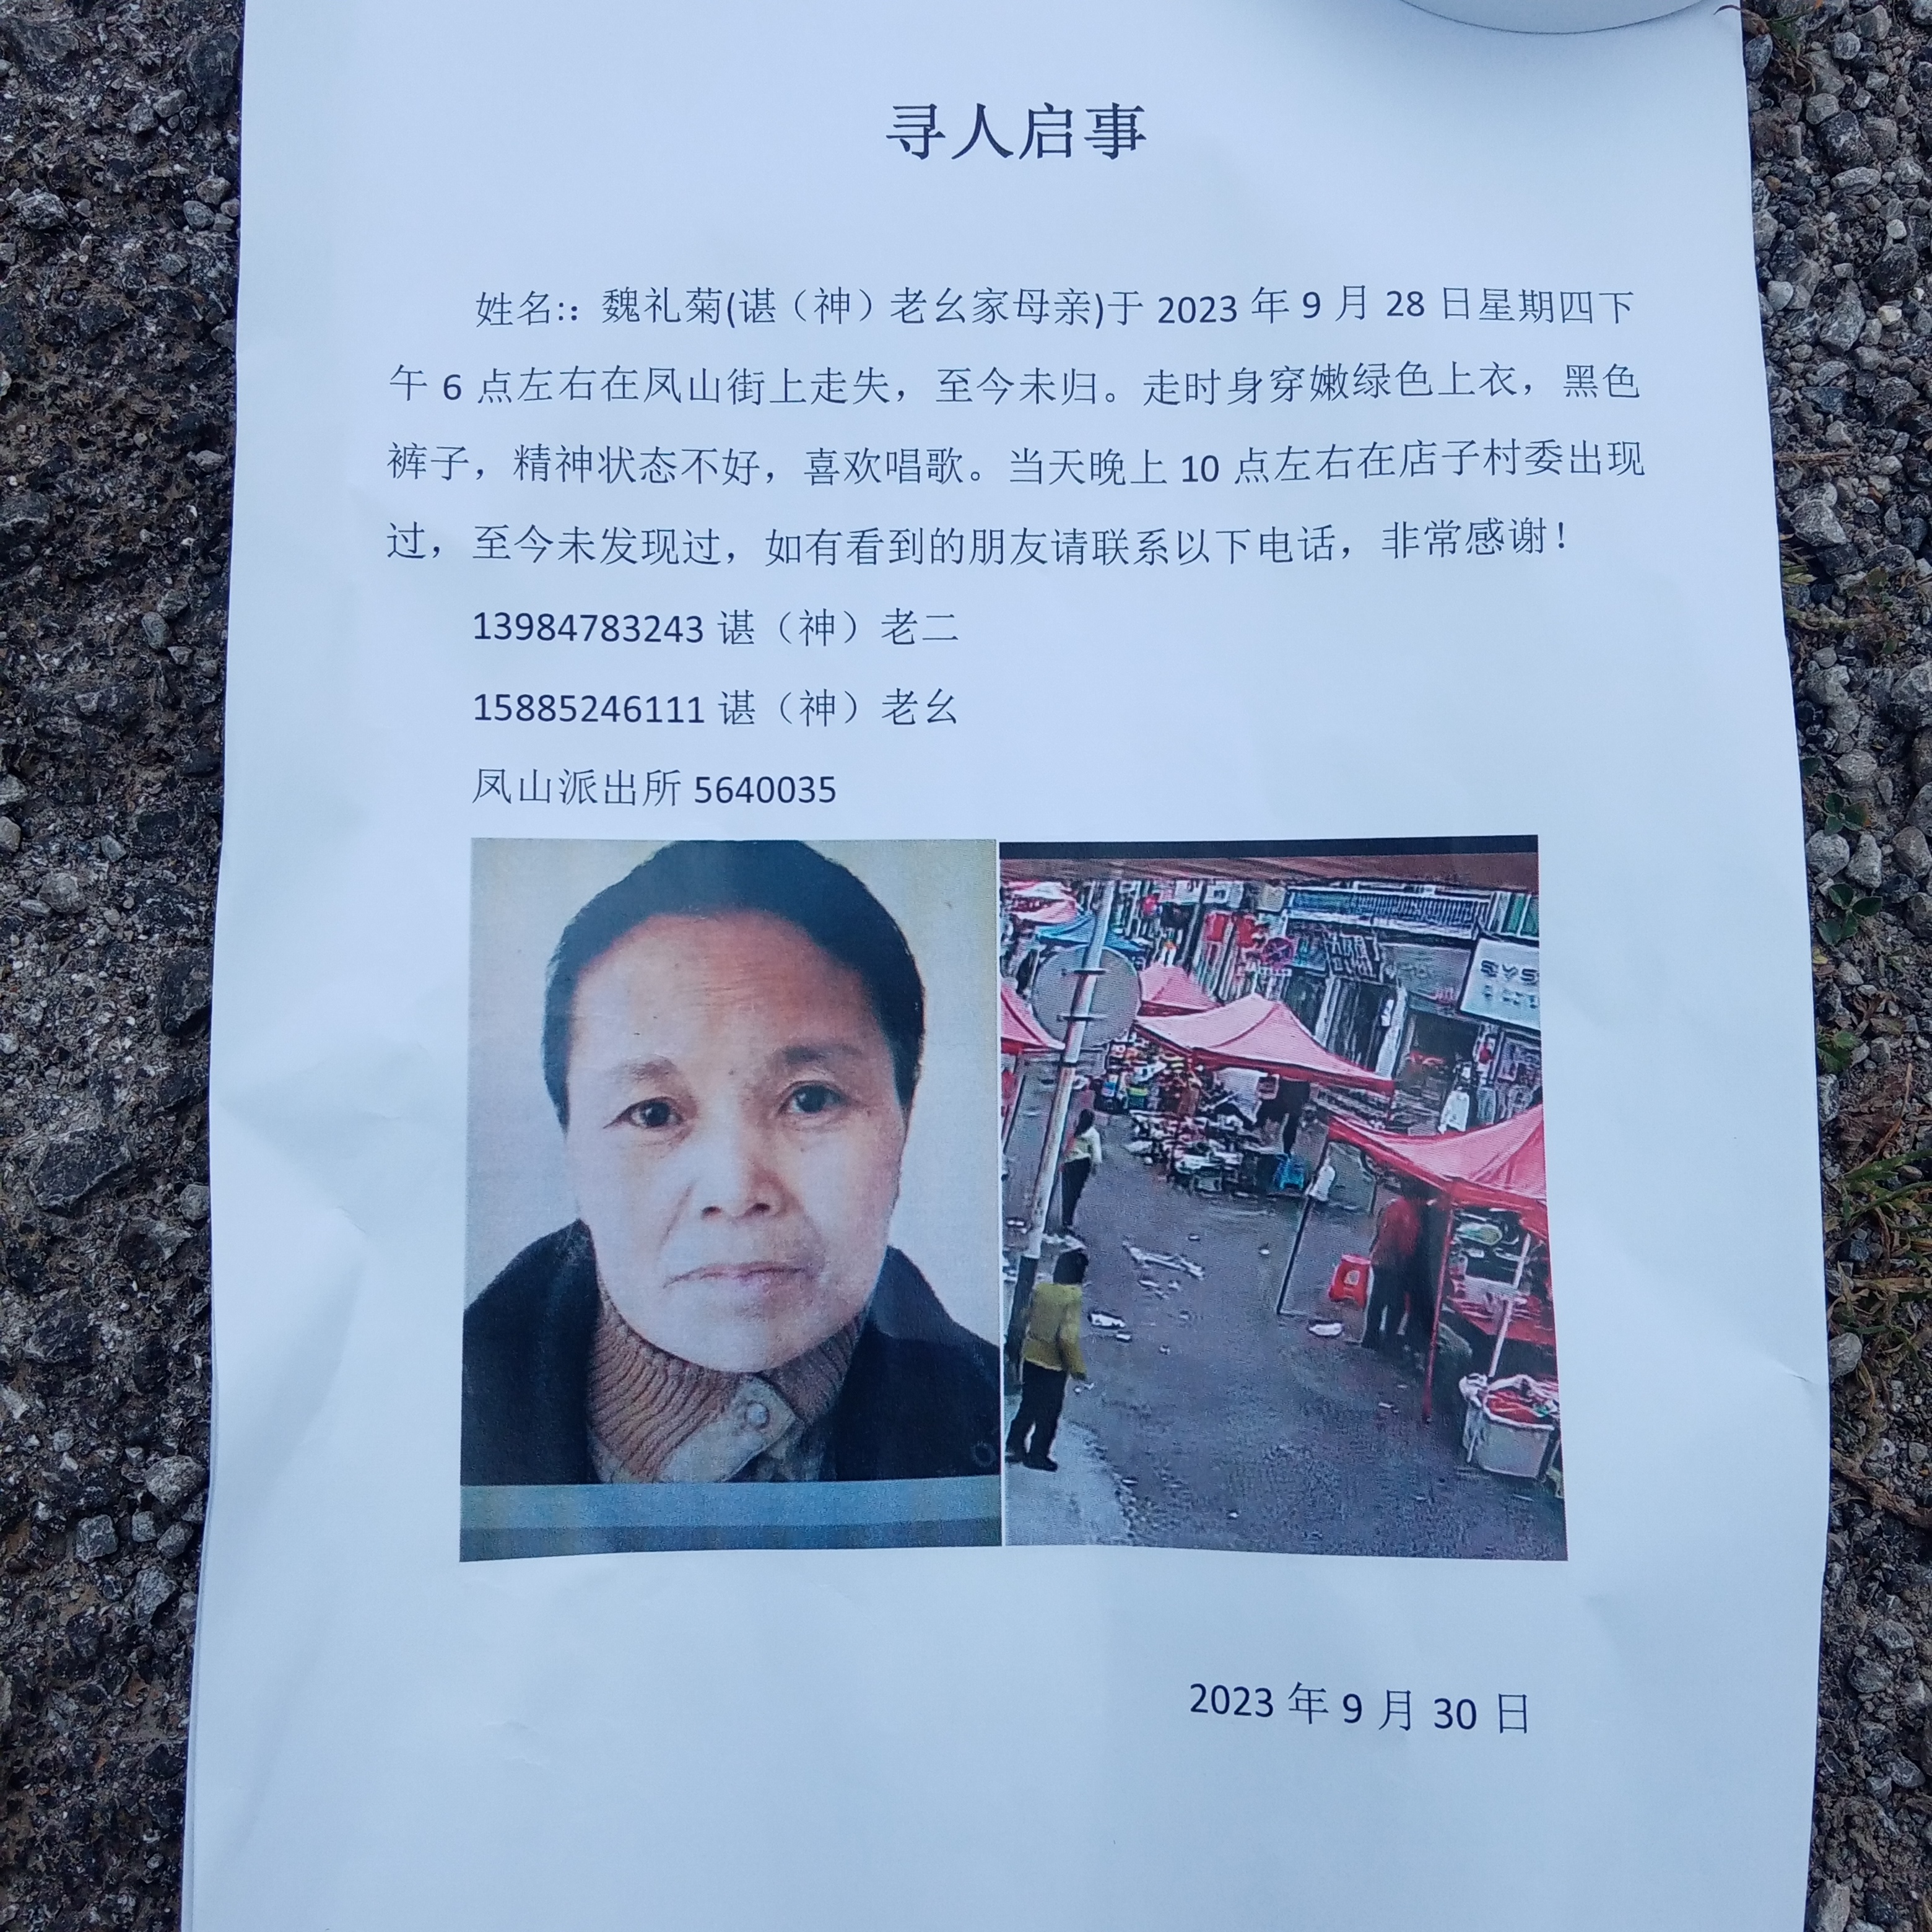 寻人启事
姓名:：魏礼菊(谌（神）老幺家母亲)于 2023 年 9 月 28 日星期四下
午 6 点左右在凤山街上走失，至今未归。走时身穿嫩绿色上衣，黑色
裤子，精神状态不好，喜欢唱歌。当天晚上 10 点左右在店子村委出现
过，至今未发现过，如有看到的朋友请联系以下电话，非常感谢！
13984783243 谌（神）老二
15885246111 谌（神）老幺
凤山派出所 5640035
2023 年 9 月 30 日